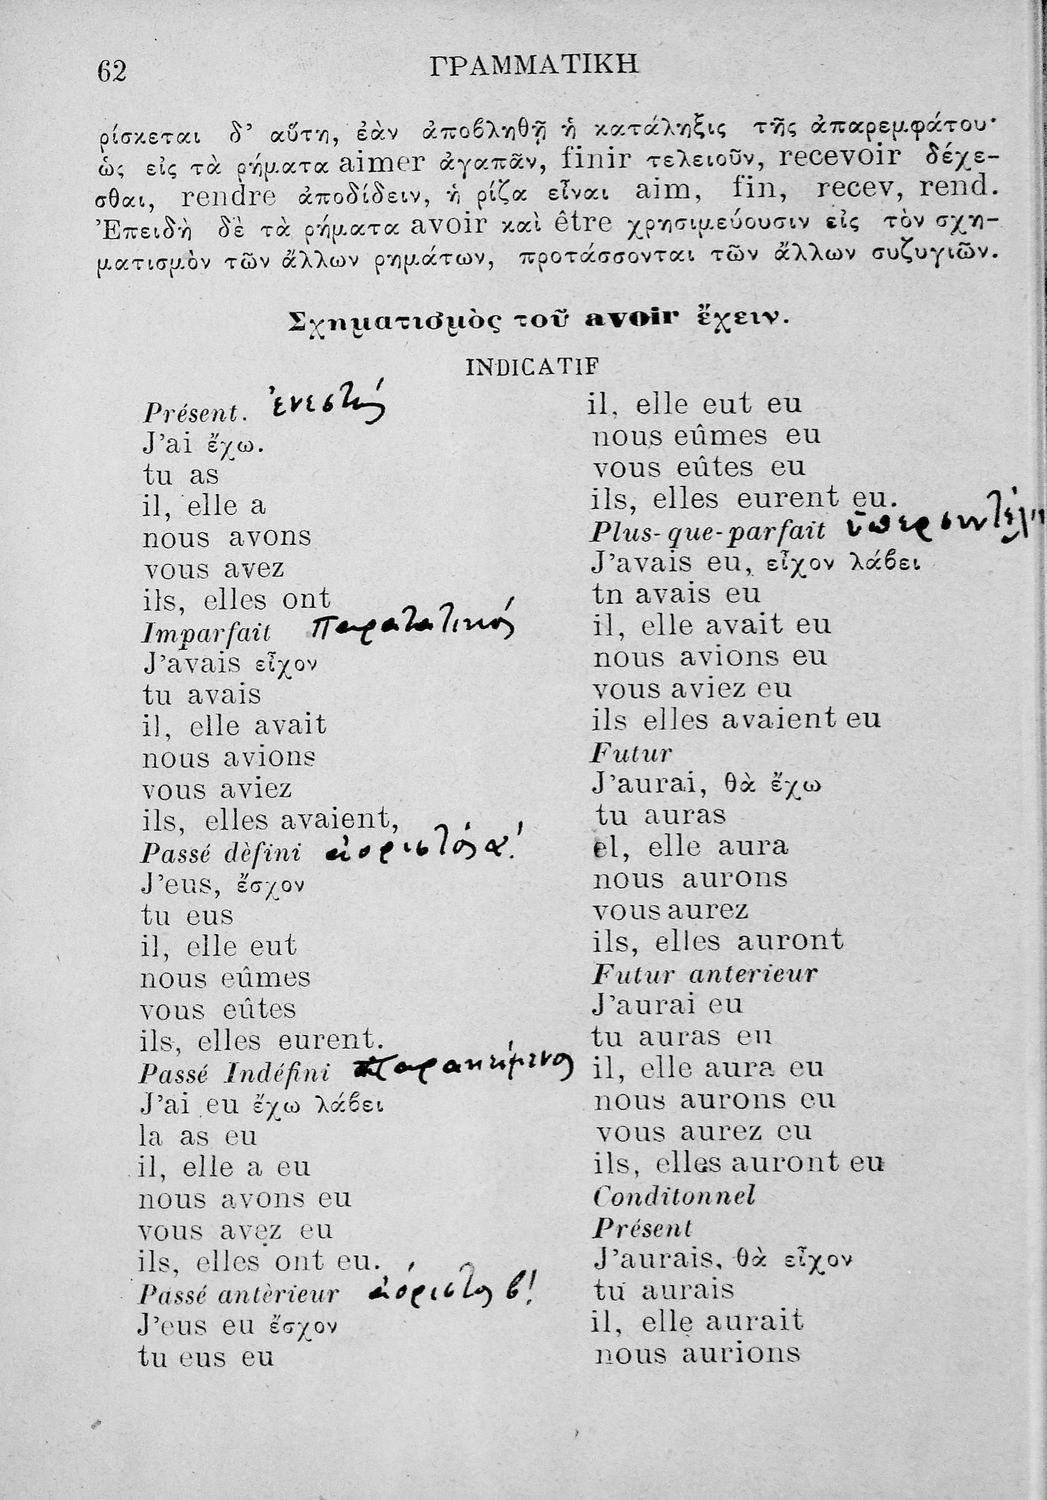 62
ΓΡΑΜΜΑΤΙΚΗ
ρίσκεται δ’ αὕτη, ἐὰν ἀποβληθῇ ἡ κατάληξις τῆς ἀπαρεμφάτου·
ὡς εἰς τὰ ρήματα aimer ἀγαπᾶν, finir τελειοῦν, recevoir δέχε-
σθαι, rendre ἀποδίδειν, ἡ ρίζα εἶναι aim, fin, recev, rend.
Ἐπειδὴ δὲ τὰ ρήματα avoir καὶ être χρησιμεύουσιν εἰς τὸν σχη-
ματισμὸν τῶν ἄλλων ρημάτων, προτάσσονται τῶν ἄλλων συζυγιῶν.
Σχηματισμὸς τοῦ avoir ἔχειν.
INDICATIF
Présent. ἐνεστώς
J’ai ἔχω.
tu as
il, elle a
nous avons
vous avez
ils, elles ont
Imparfait παρατατικός
J’avais εἶχον
tu avais
il, elle avait
nous avions
vous aviez
ils, elles avaient,
Passé dèfini ἀόριστός α!
J’eus, ἔσχον
tu eus
il, elle eut
nous eûmes
vous eûtes
ils, elles eurent.
Passé Indéfini παρακείμενος
J’ai eu ἔχω λάβει
la as eu
il, elle a eu
nous avons eu
vous avez eu
ils, elles ont eu.
Passé antèrieur ἀόριστος β!
J’eus eu ἔσχον
tu eus eu
il, elle eut eu
nous eûmes eu
vous eûtes eu
ils, elles eurent eu.
Plus-que-parfait
J’avais eu, εἶχον λάβει
tn avais eu
il, elle avait eu
nous avions eu
vous aviez eu
ils elles avaient eu
Futur
J’aurai, θὰ ἔχω
tu auras
el, elle aura
nous aurons
vous aurez
ils, elles auront
Futur anterieur
J’aurai eu
tu auras eu
il, elle aura eu
nous aurons eu
vous aurez eu
ils, elles auront eu
Conditonnel
Présent
J’aurais, θὰ εἶχον
tu aurais
il, elle aurait
nous aurions